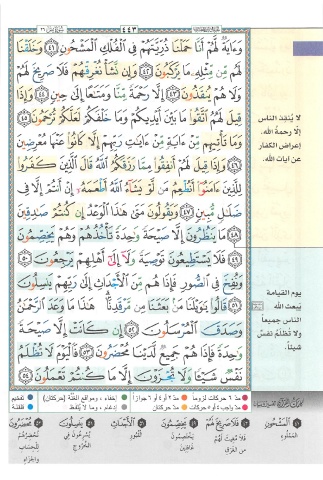 ٤٤٣
وَءَايَةٌ لَّهُمْ أَنَّا حَمَلْنَا ذُرِّيَّتَهُمْ فِى ٱلْفُلْكِ ٱلْمَشْحُونِ ٤١ وَخَلَقْنَا
لَهُم مِّن مِّثْلِهِۦ مَا يَرْكَبُونَ ٤٢ وَإِن نَّشَأْ نُغْرِقْهُمْ فَلَا صَرِيخَ لَهُمْ
وَلَا هُمْ يُنقَذُونَ ٤٣ إِلَّا رَحْمَةً مِّنَّا وَمَتَٰعًا إِلَىٰ حِينٍ ٤٤ وَإِذَا
قِيلَ لَهُمُ ٱتَّقُوا۟ مَا بَيْنَ أَيْدِيكُمْ وَمَا خَلْفَكُمْ لَعَلَّكُمْ تُرْحَمُونَ ٤٥
وَمَا تَأْتِيهِم مِّنْ ءَايَةٍ مِّنْ ءَايَٰتِ رَبِّهِمْ إِلَّا كَانُوا۟ عَنْهَا مُعْرِضِينَ
٤٦ وَإِذَا قِيلَ لَهُمْ أَنفِقُوا۟ مِمَّا رَزَقَكُمُ ٱللَّهُ قَالَ ٱلَّذِينَ كَفَرُوا۟
لِلَّذِينَ ءَامَنُوٓا۟ أَنُطْعِمُ مَن لَّوْ يَشَآءُ ٱللَّهُ أَطْعَمَهُۥٓ إِنْ أَنتُمْ إِلَّا فِى
ضَلَٰلٍ مُّبِينٍ ٤٧ وَيَقُولُونَ مَتَىٰ هَٰذَا ٱلْوَعْدُ إِن كُنتُمْ صَٰدِقِينَ
٤٨ مَا يَنظُرُونَ إِلَّا صَيْحَةً وَٰحِدَةً تَأْخُذُهُمْ وَهُمْ يَخِصِّمُونَ
٤٩ فَلَا يَسْتَطِيعُونَ تَوْصِيَةً وَلَآ إِلَىٰٓ أَهْلِهِمْ يَرْجِعُونَ ٥٠
وَنُفِخَ فِى ٱلصُّورِ فَإِذَا هُم مِّنَ ٱلْأَجْدَاثِ إِلَىٰ رَبِّهِمْ يَنسِلُونَ
٥١ قَالُوا۟ يَٰوَيْلَنَا مَنۢ بَعَثَنَا مِن مَّرْقَدِنَا ۜ هَٰذَا مَا وَعَدَ ٱلرَّحْمَٰنُ
وَصَدَقَ ٱلْمُرْسَلُونَ ٥٢ إِن كَانَتْ إِلَّا صَيْحَةً
وَٰحِدَةً فَإِذَا هُمْ جَمِيعٌ لَّدَيْنَا مُحْضَرُونَ ٥٣ فَٱلْيَوْمَ لَا تُظْلَمُ
نَفْسٌ شَيْـًٔا وَلَا تُجْزَوْنَ إِلَّا مَا كُنتُمْ تَعْمَلُونَ ٥٤
لا يُنقِذ الناس
إلّا رحمةُ الله.
إعراض الكفار
عن آيات الله.
يوم القيامة
يبعث الله
الناس جميعاً
ولا تُظلَمُ نفسٌ
شيئاً.
مدّ ٦ حركات لزوماً
مدّ ٢ أو ٤ أو ٦ جوازاً
إخفاء، ومواقع الغُنَّة (حركتان)
تفخيم
مدّ حركتان
إدغام، وما لا يُلفَظ
قلقلة
ٱلْمَشْحُونِ
المملوء
فَلَا صَرِيخَ لَهُمْ
فلا مُغيث لهم
من الغرق
يَخِصِّمُونَ
يختصمون
غافلين
ٱلْأَجْدَاثِ
القبور
يَنسِلُونَ
يسرعون في
الخروج
مُحْضَرُونَ
نُحضِرهم
للحساب
والجزاء